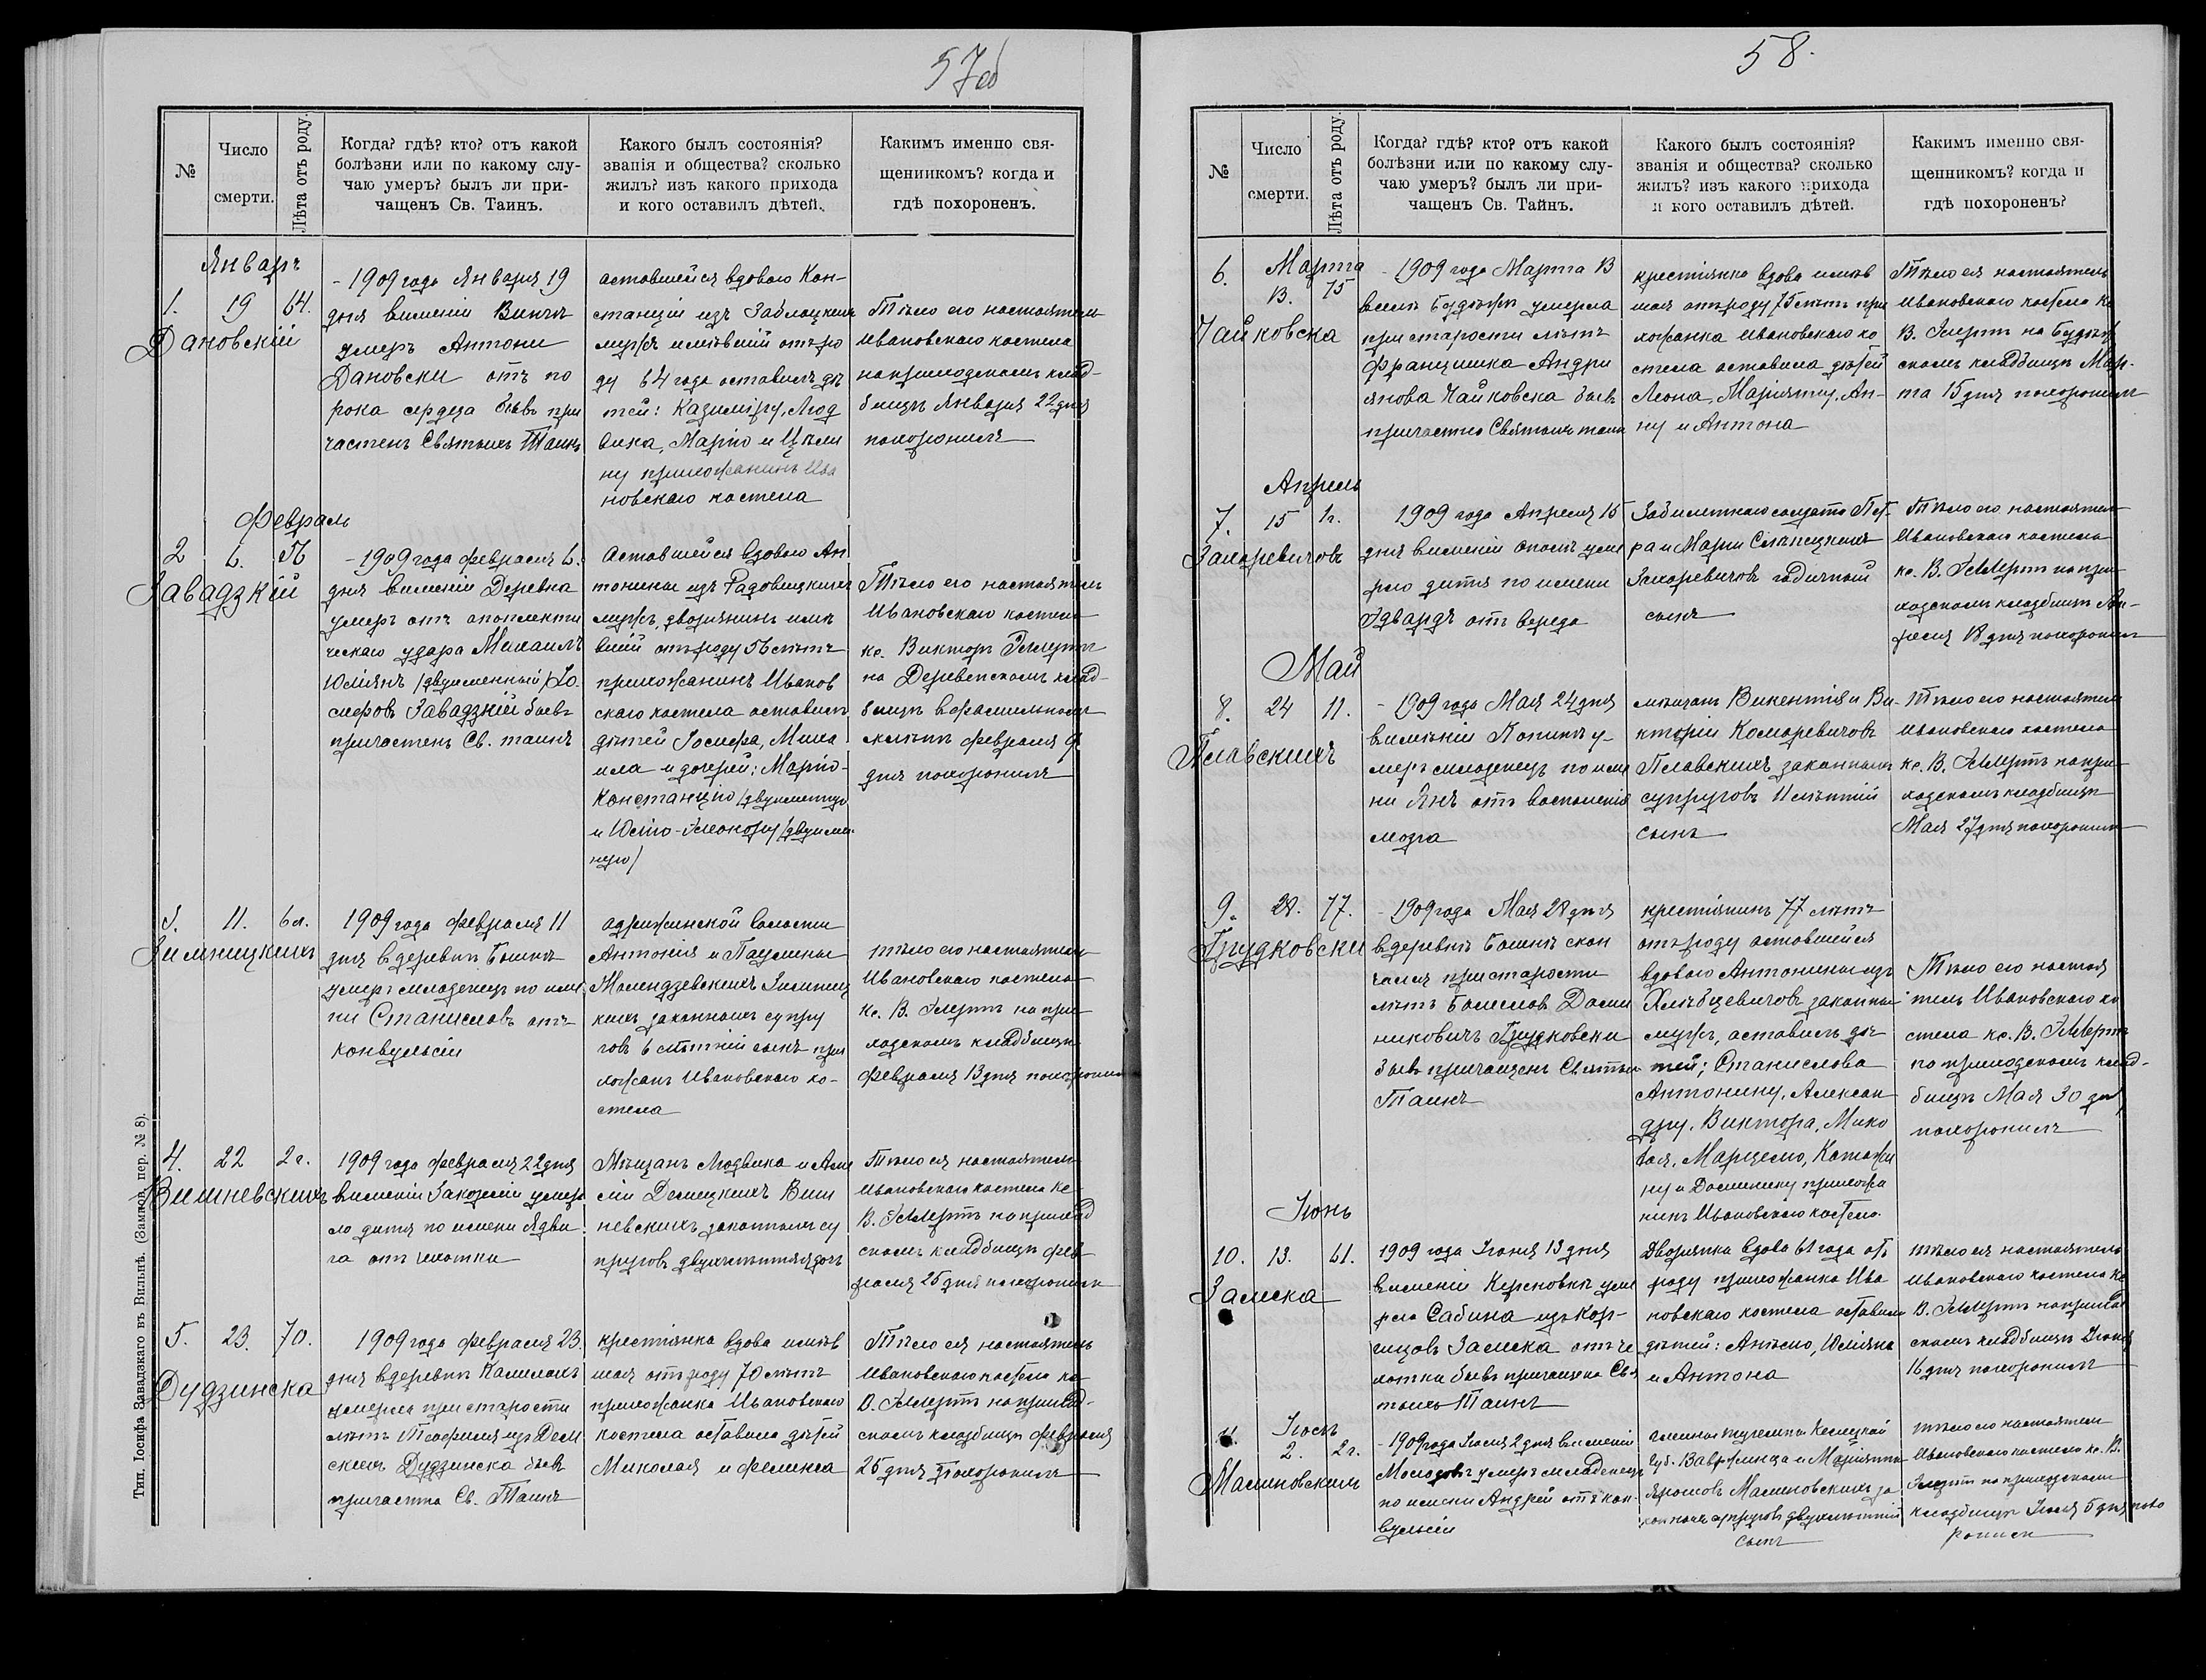 57об
№
Число
смерти.
Лѣта отъ роду.
Когда? гдѣ? кто? отъ какой
болѣзни или по какому слу-
чаю умеръ? былъ ли при-
чащенъ Св. Таинъ.
Какого былъ состоянія?
званія и общества? сколько
жилъ? изъ какого прихода
и кого оставилъ дѣтей.
Какимъ именно свя-
щенникомъ? когда и
гдѣ похороненъ.
Январь
1. 19 64.
Дановскій
- 1909 года Января 19
дня
умеръ Антони
Дановски отъ по
рока сердца бывъ при
частенъ Святыхъ Таинъ
аставшейся вдовою Кон-
станціи изъ Заблоцкихъ
мужъ имѣвшій отъ ро
ду 64 года оставилъ дѣ
тей: Казиміру, Люд
вика, Марію и Цели
ну прихожанинъ Ива
новскаго костела
Тѣло его настоятель
Ивановскаго костела
на приходскомъ клад-
бищѣ Января 22 дня
похоронилъ
Февраль
2 6. 56
Завадзкій
- 1909 года февраля 6.
дня вименіи Деревна
умеръ отъ апоплекти
ческаго удара Михаилъ
Юліянъ /двуименный/ Іо
сифовъ Завадзкій бывъ
причастенъ Св. таинъ
Аставшейся вдовою Ан
тонины изъ Радовицкихъ
мужъ, дворянинъ имѣ
вшій отъ роду 56 лѣтъ
прихожанинъ Иванов
скаго костела оставилъ
дѣтей Іосифа, Миха
ила и дочерей: Марію-
Констанцію /двуименную
и Юлію-Элеонору /двуиме-
ную/
Тѣло его настоятель
Ивановскаго костела
кс. Викторъ Эллертъ
на Деревенскомъ клад-
бищѣ вфамильномъ
склепѣ февраля 9
дня похоронилъ
3. 11. 6л.
Зимницкихъ
1909 года февраля 11
дня вдеревнѣ Башкѣ
умеръ младенецъ по име
ни Станиславъ отъ
конвульсіи
адрижинской валости
Антонія и Паулины
Малендзевскихъ Зимниц
кихъ законныхъ супру
говъ 6 лѣтній сынъ при
хожанъ Ивановскаго ко-
стела
тѣло его настоятель
Ивановскаго костела
кс. В. Эллертъ на при
ходскомъ кладбищѣ
февраля 13 дня похоронилъ
4. 22 2г.
Вишневскихъ
1909 года февраля 22 дня
вименіи Закозеліи умер
ло дитя по имени Ядви
га отъ чахотки
Мѣщанъ Людвика и Аме
ліи Демецкихъ Виш
невскихъ законныхъ су
пруговъ двухлѣтняя дочь
Тѣло ея настоятель
Ивановскаго костела кс.
В. Эллертъ на приход
скомъ кладбищѣ фев
раля 25 дня похоронилъ
5. 23. 70.
Дудзинска
1909 года февраля 23.
дня вдеревнѣ
умерла при старости
лѣтъ Теофиля изъ Дем
скихъ Дудзинска бывъ
причастна Св. Таинъ
крестіянка вдова имѣв
шая отъ роду 70 лѣтъ
прихожанка Ивановскаго
костела оставила дѣтей
Миколая и Феликса
Тѣло ея настоятель
Ивановскаго костела кс.
В. Эллертъ на приход-
скомъ кладбищѣ февраля
25 дня похоронилъ
Тип. Іосифа Завадзкаго въ Вильнѣ. (Замков. пер. № 8).
58.
№
Число
смерти.
Лѣта отъ роду.
Когда? гдѣ? кто? отъ какой
болѣзни или по какому слу-
чаю умеръ? былъ ли при-
чащенъ Св. Тайнъ.
Какого былъ состоянія?
званія и общества? сколько
жилъ? изъ какого прихода
и кого оставилъ дѣтей.
Какимъ именно свя-
щенникомъ? когда и
гдѣ похороненъ?
Марта
6. 13. 75
Чайковска
- 1909 года Марта 13
умерла
при старости лѣтъ
Францишка Андри
янова Чайковска бывъ
причастна Святыхъ таинъ
крестіянка вдова имѣв
шая отъ роду 75 лѣтъ при
хожанка Ивановскаго ко
стела оставила дѣтей
Леона, Маріянну, Ан-
ну и Антона
Тѣло ея настоятель
Ивановскаго костела кс
В. Эллертъ на
скомъ кладбищѣ Мар-
та 15 дня похоронилъ
Апрель
7. 15 1г.
Захаревичовъ
1909 года Апреля 15
дня вименіи уме
рло дитя по имени
Эдвардъ отъ вереда
Забилетнаго солдата Пет-
ра и Маріи Слѣпецкихъ
Захаревичовъ годичный
сынъ
Тѣло его настоятель
Ивановскаго костела
кс. В. Эллертъ на при
ходскомъ кладбищѣ Ап-
реля 18 дня похоронилъ
Май
8. 24 11.
Плавскихъ
- 1909 года Мая 24 дня
вимѣніи у-
меръ младенецъ по име
ни Янъ отъ воспаленія
мозга
мѣщанъ Викентія и Ви-
кторіи Комаревичовъ
Плавскихъ законныхъ
супруговъ 11 лѣтній
сынъ
Тѣло его настоятель
Ивановскаго костела
кс. В. Эллертъ на при-
ходскомъ кладбищѣ
Мая 27 дня похоронилъ
9. 28. 77.
Грудковски
- 1909 года Мая 28 дня
вдеревнѣ Башкѣ скон
чался при старости
лѣтъ Болеслав Доми
никовичъ Грудковски
бывъ причащенъ Святыхъ
Таинъ
крестіянинъ 77 лѣтъ
отъ роду аставшейся
вдовою Антонины изъ
Хлѣбцевичовъ законны
мужъ, оставилъ дѣ
тей; Станислава
Антонину, Алексан
дру, Виктора, Мико
лая, Марцелю, Катажи
ну и Доминику прихожа
нинъ Ивановскаго костела.
Тѣло его настоя
тель Ивановскаго ко
стела кс. В. Эллертъ
на приходскомъ клад-
бищѣ Мая 30 дня
похоронилъ
Іюнь
10. 13. 61.
Залеска
1909 года Іюня 13 дня
вименіи уме
рла Сабина изъ Кор-
Залеска отъ ча
хотки бывъ причащена Свя
тыхъ Таинъ
Дворянка вдова 61 года отъ
роду прихожанка Ива
новскаго костела оставила
дѣтей: Анѣлю, Юліяна
и Антона
тѣло ея настоятель
Ивановскаго костела кс
В. Эллертъ на приход
скомъ кладбищѣ Іюня
16 дня похоронилъ
Іюль
11. 2. 2г.
Малиновскихъ
- 1909 года Іюля 2 дня вименіи
умеръ младенецъ
по имени Андрей отъ кон-
вульсіи
Келецкой
Губ. Вавржинца и Маріянны
Малиновскихъ за
конныхъ супруговъ двухлѣтній
сынъ
тѣло его настоятель
Ивановскаго костела кс. В.
Эллертъ на приходскомъ
кладбищѣ Іюля 5 дня похо
ронилъ